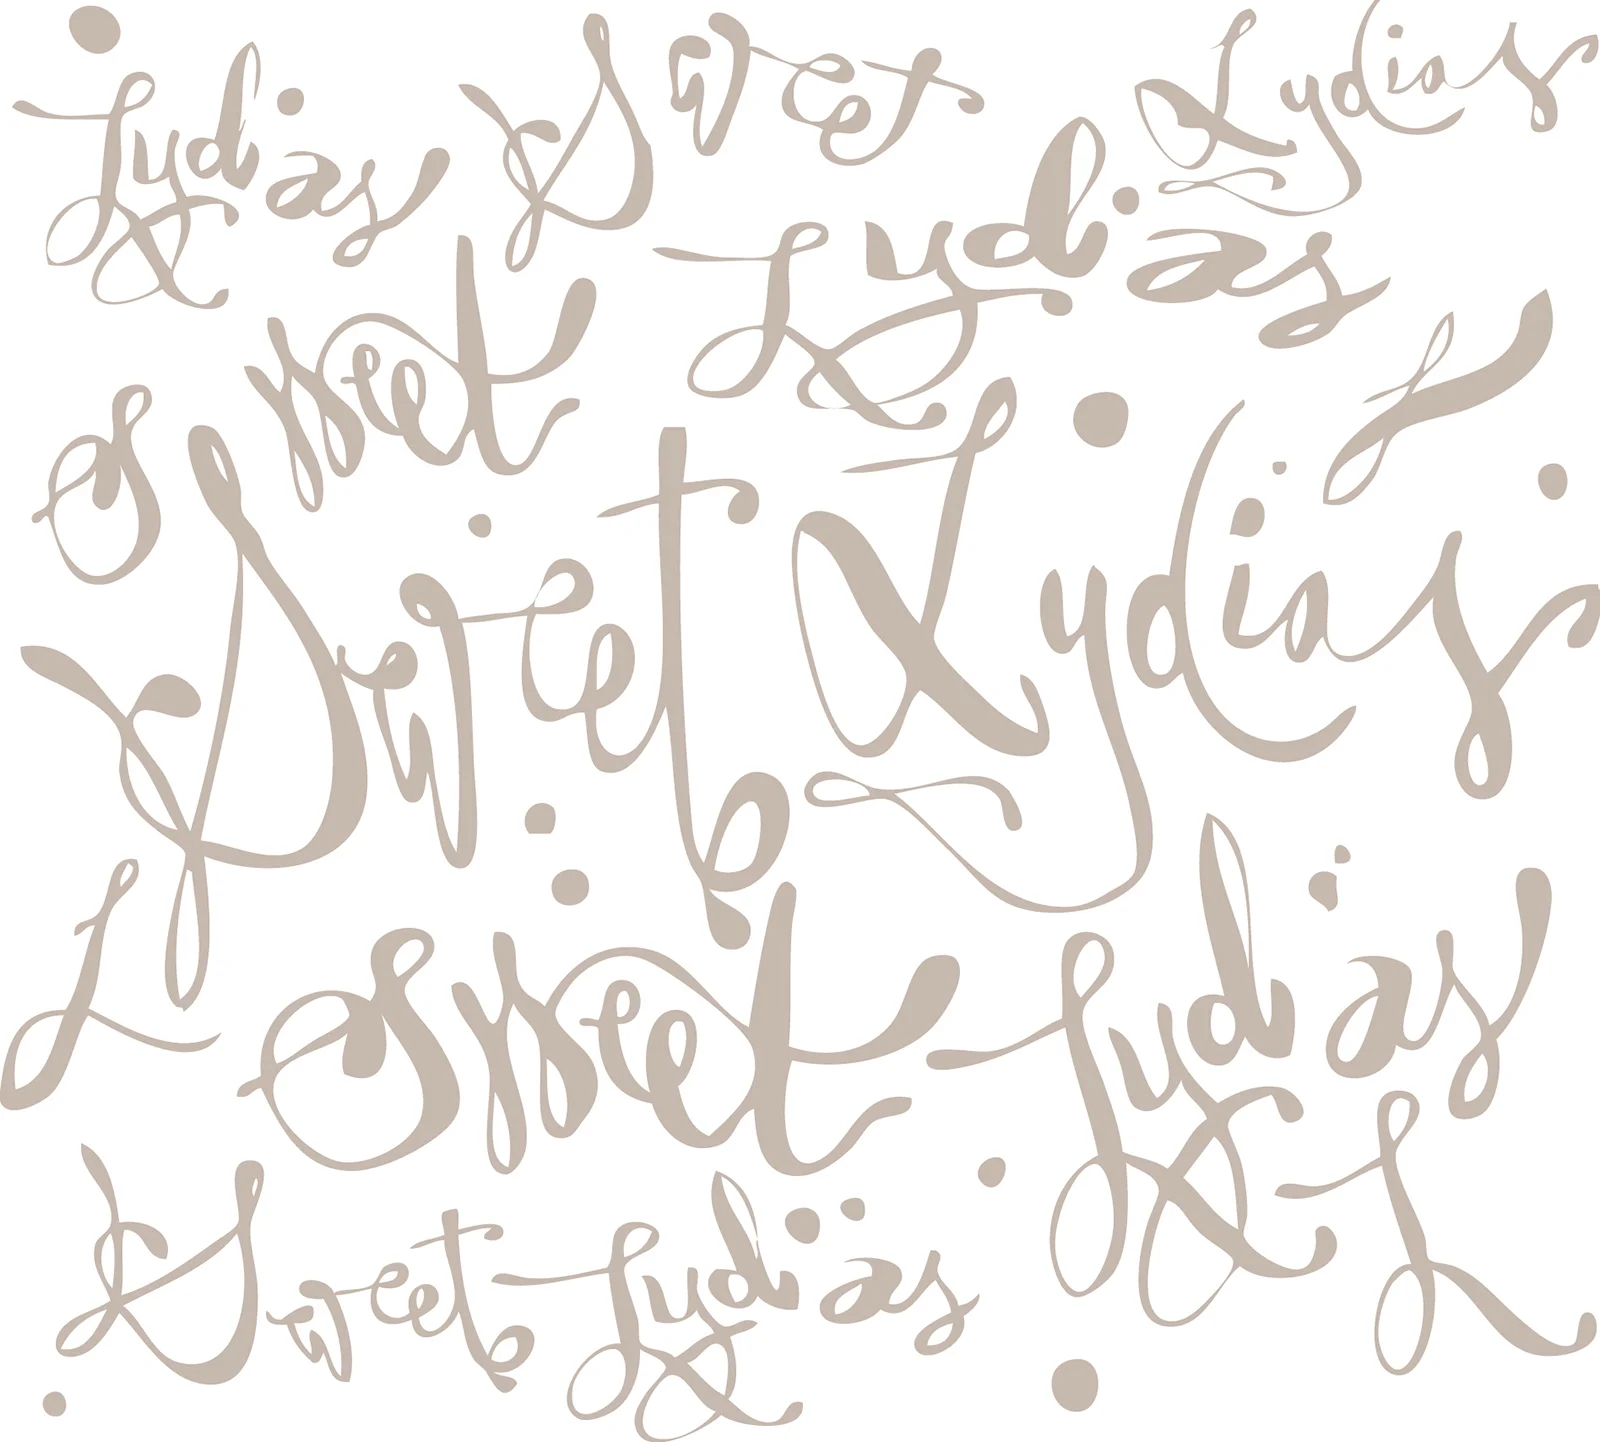 Lydias Sweet Lydias
Sweet Lydias
L
Sweet Lydias
L
Sweet Lydias
L
Sweet Lydias